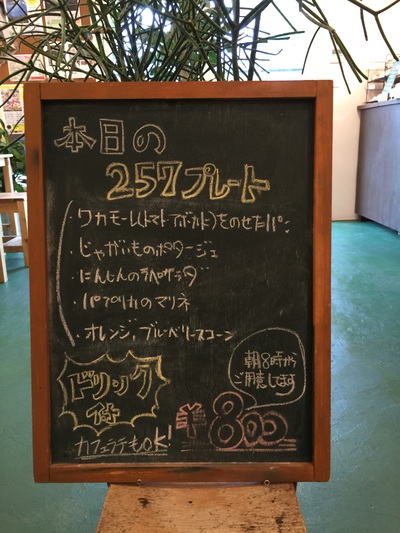 本日の
257プレート
ワカモーレ(トマトアボカド)をのせたパン
・じゃがいものポタージュ
・にんじんのラペサラダ
・パプリカのマリネ
・オレンジ、ブルーベリースコーン
朝8時から
ご用意してます
ドリンク
付
カフェラテもOK!
¥800